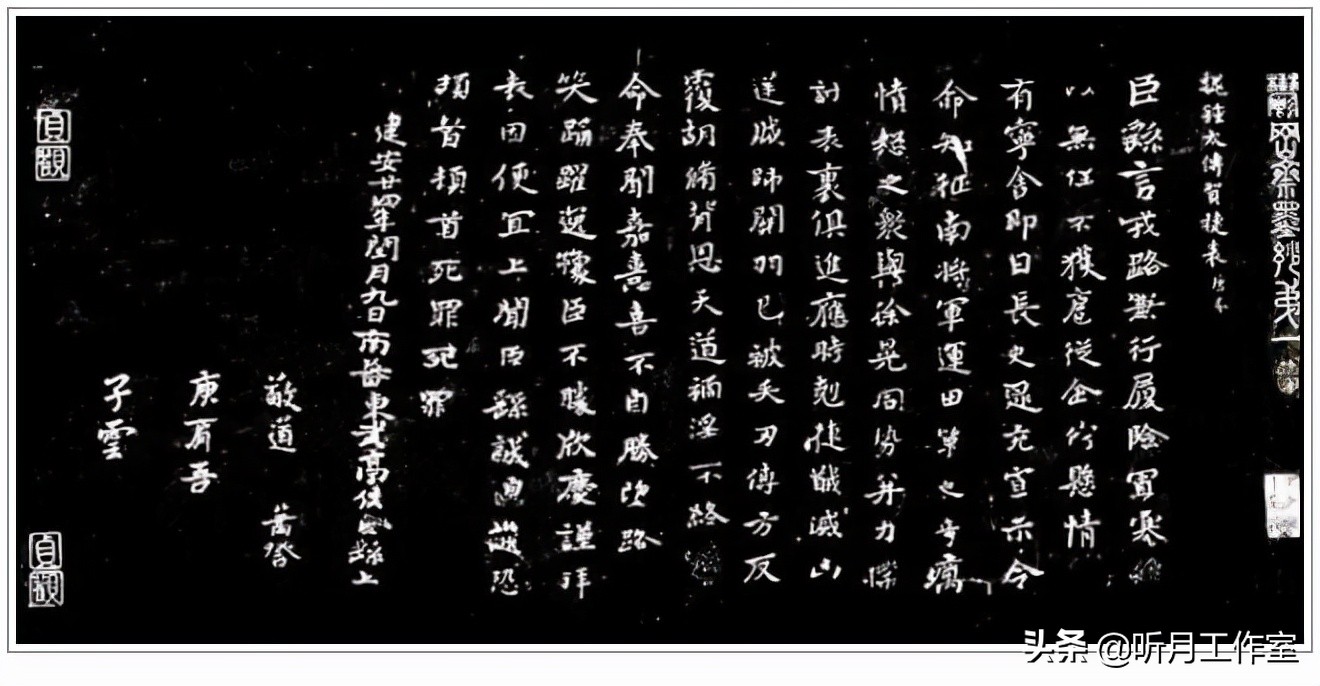 鬱岡齋墨妙第一
魏鍾太傅賀捷表
臣繇言戎路兼行履險冒寒
以無任不獲扈從企佇懸情
有寧舍即日長史逯充宣示令
命知征南將軍運田單之奇厲
憤怒之衆與徐晃同勢并力撲
討表裏俱進應時剋捷馘滅凶
逆賊帥關羽已被矢刃傅方反
覆胡脩背恩天道禍淫不終
命奉聞嘉憙喜不自勝望路
笑踴躍逸豫臣不勝欣慶謹拜
表因便宜上聞臣繇誠惶誠恐
頓首頓首死罪死罪
建安廿四年閏月九日南蕃東武亭侯臣繇上
敬道
庾肩吾
子雲
貞觀
貞觀
头条 @听月工作室